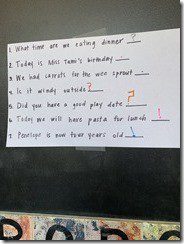 1. What time are we eating dinner ?
2. Today is Miss Tami's birthday .
3. We had carrots for the wee sprout .
4. Is it windy outside ?
5. Did you have a good play date ?
6. Today we will have pasta for lunch !
7. Penelope is now four years old !